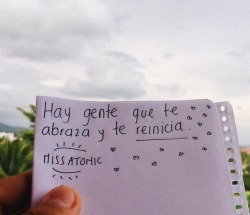 Hay gente que te
abraza y te reinicia.
MISS ATOMIC